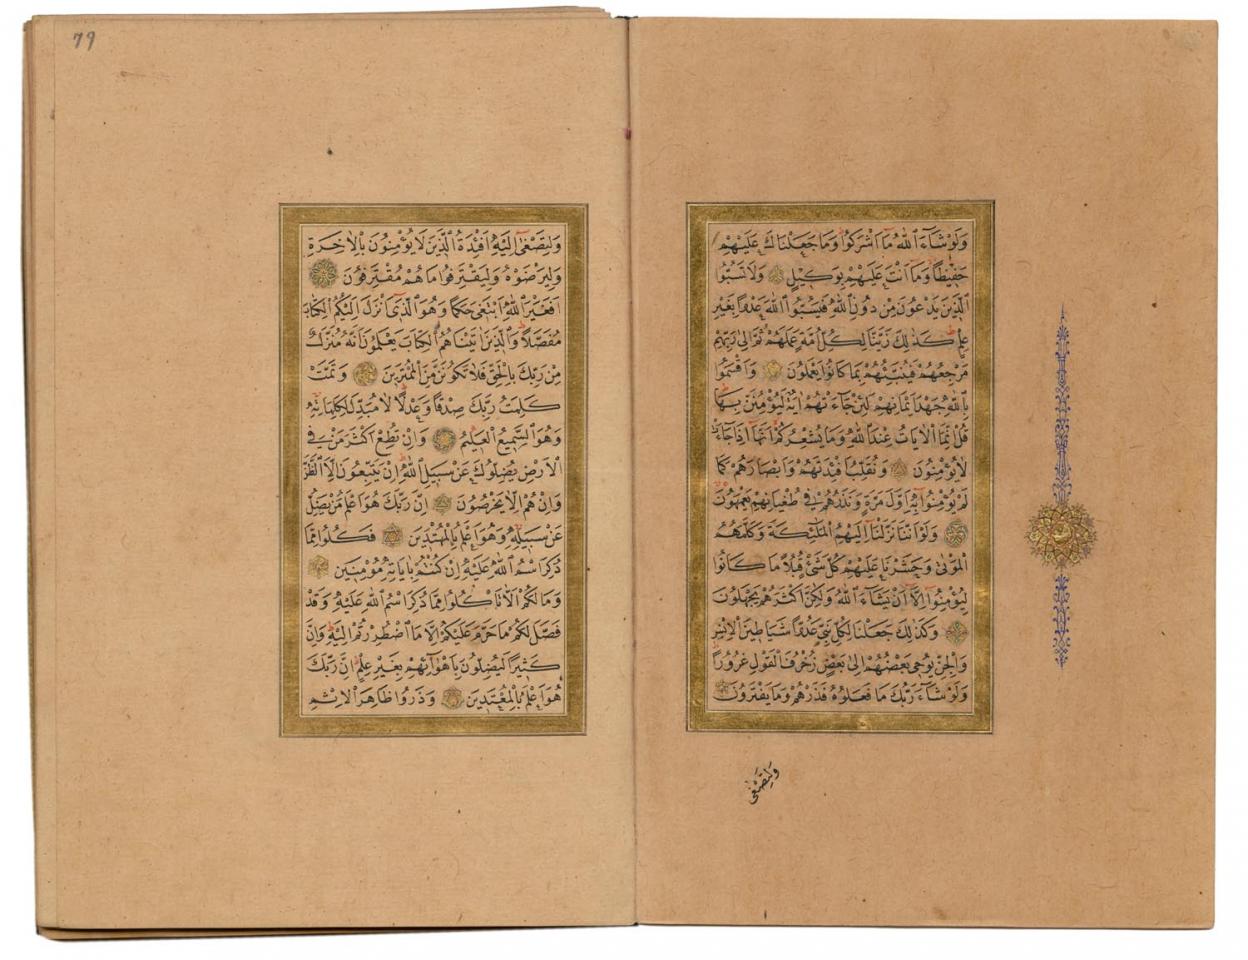 وَلَوْ شَاءَ اللّٰهُ مَا اَشْرَكُوا وَمَا جَعَلْنَاكَ عَلَيْهِمْ
حَفِيظًا وَمَا اَنْتَ عَلَيْهِمْ بِوَكِيلٍ وَلَا تَسُبُّوا
الَّذِينَ يَدْعُونَ مِنْ دُونِ اللّٰهِ فَيَسُبُّوا اللّٰهَ عَدْوًا بِغَيْرِ
عِلْمٍ كَذٰلِكَ زَيَّنَّا لِكُلِّ اُمَّةٍ عَمَلَهُمْ ثُمَّ اِلٰى رَبِّهِمْ
مَرْجِعُهُمْ فَيُنَبِّئُهُمْ بِمَا كَانُوا يَعْمَلُونَ وَاَقْسَمُوا
بِاللّٰهِ جَهْدَ اَيْمَانِهِمْ لَئِنْ جَاءَتْهُمْ اٰيَةٌ لَيُؤْمِنُنَّ بِهَا
قُلْ اِنَّمَا الْاٰيَاتُ عِنْدَ اللّٰهِ وَمَا يُشْعِرُكُمْ اَنَّهَا اِذَا جَاءَتْ
لَا يُؤْمِنُونَ وَنُقَلِّبُ اَفْئِدَتَهُمْ وَاَبْصَارَهُمْ كَمَا
لَمْ يُؤْمِنُوا بِهِ اَوَّلَ مَرَّةٍ وَنَذَرُهُمْ فِي طُغْيَانِهِمْ يَعْمَهُونَ
وَلَوْ اَنَّنَا نَزَّلْنَا اِلَيْهِمُ الْمَلٰئِكَةَ وَكَلَّمَهُمُ
الْمَوْتٰى وَحَشَرْنَا عَلَيْهِمْ كُلَّ شَيْءٍ قُبُلًا مَا كَانُوا
لِيُؤْمِنُوا اِلَّا اَنْ يَشَاءَ اللّٰهُ وَلٰكِنَّ اَكْثَرَهُمْ يَجْهَلُونَ
وَكَذٰلِكَ جَعَلْنَا لِكُلِّ نَبِيٍّ عَدُوًّا شَيَاطِينَ الْاِنْسِ
وَالْجِنِّ يُوحِي بَعْضُهُمْ اِلٰى بَعْضٍ زُخْرُفَ الْقَوْلِ غُرُورًا
وَلَوْ شَاءَ رَبُّكَ مَا فَعَلُوهُ فَذَرْهُمْ وَمَا يَفْتَرُونَ
وَلِتَصْغٰى
79
وَلِتَصْغٰى اِلَيْهِ اَفْئِدَةُ الَّذِينَ لَا يُؤْمِنُونَ بِالْاٰخِرَةِ
وَلِيَرْضَوْهُ وَلِيَقْتَرِفُوا مَا هُمْ مُقْتَرِفُونَ
اَفَغَيْرَ اللّٰهِ اَبْتَغِي حَكَمًا وَهُوَ الَّذِي اَنْزَلَ اِلَيْكُمُ الْكِتَابَ
مُفَصَّلًا وَالَّذِينَ اٰتَيْنَاهُمُ الْكِتَابَ يَعْلَمُونَ اَنَّهُ مُنَزَّلٌ
مِنْ رَبِّكَ بِالْحَقِّ فَلَا تَكُونَنَّ مِنَ الْمُمْتَرِينَ وَتَمَّتْ
كَلِمَتُ رَبِّكَ صِدْقًا وَعَدْلًا لَا مُبَدِّلَ لِكَلِمَاتِهِ
وَهُوَ السَّمِيعُ الْعَلِيمُ وَاِنْ تُطِعْ اَكْثَرَ مَنْ فِي
الْاَرْضِ يُضِلُّوكَ عَنْ سَبِيلِ اللّٰهِ اِنْ يَتَّبِعُونَ اِلَّا الظَّنَّ
وَاِنْ هُمْ اِلَّا يَخْرُصُونَ اِنَّ رَبَّكَ هُوَ اَعْلَمُ مَنْ يَضِلُّ
عَنْ سَبِيلِهِ وَهُوَ اَعْلَمُ بِالْمُهْتَدِينَ فَكُلُوا مِمَّا
ذُكِرَ اسْمُ اللّٰهِ عَلَيْهِ اِنْ كُنْتُمْ بِاٰيَاتِهِ مُؤْمِنِينَ
وَمَا لَكُمْ اَلَّا تَأْكُلُوا مِمَّا ذُكِرَ اسْمُ اللّٰهِ عَلَيْهِ وَقَدْ
فَصَّلَ لَكُمْ مَا حَرَّمَ عَلَيْكُمْ اِلَّا مَا اضْطُرِرْتُمْ اِلَيْهِ وَاِنَّ
كَثِيرًا لَيُضِلُّونَ بِاَهْوَائِهِمْ بِغَيْرِ عِلْمٍ اِنَّ رَبَّكَ
هُوَ اَعْلَمُ بِالْمُعْتَدِينَ وَذَرُوا ظَاهِرَ الْاِثْمِ